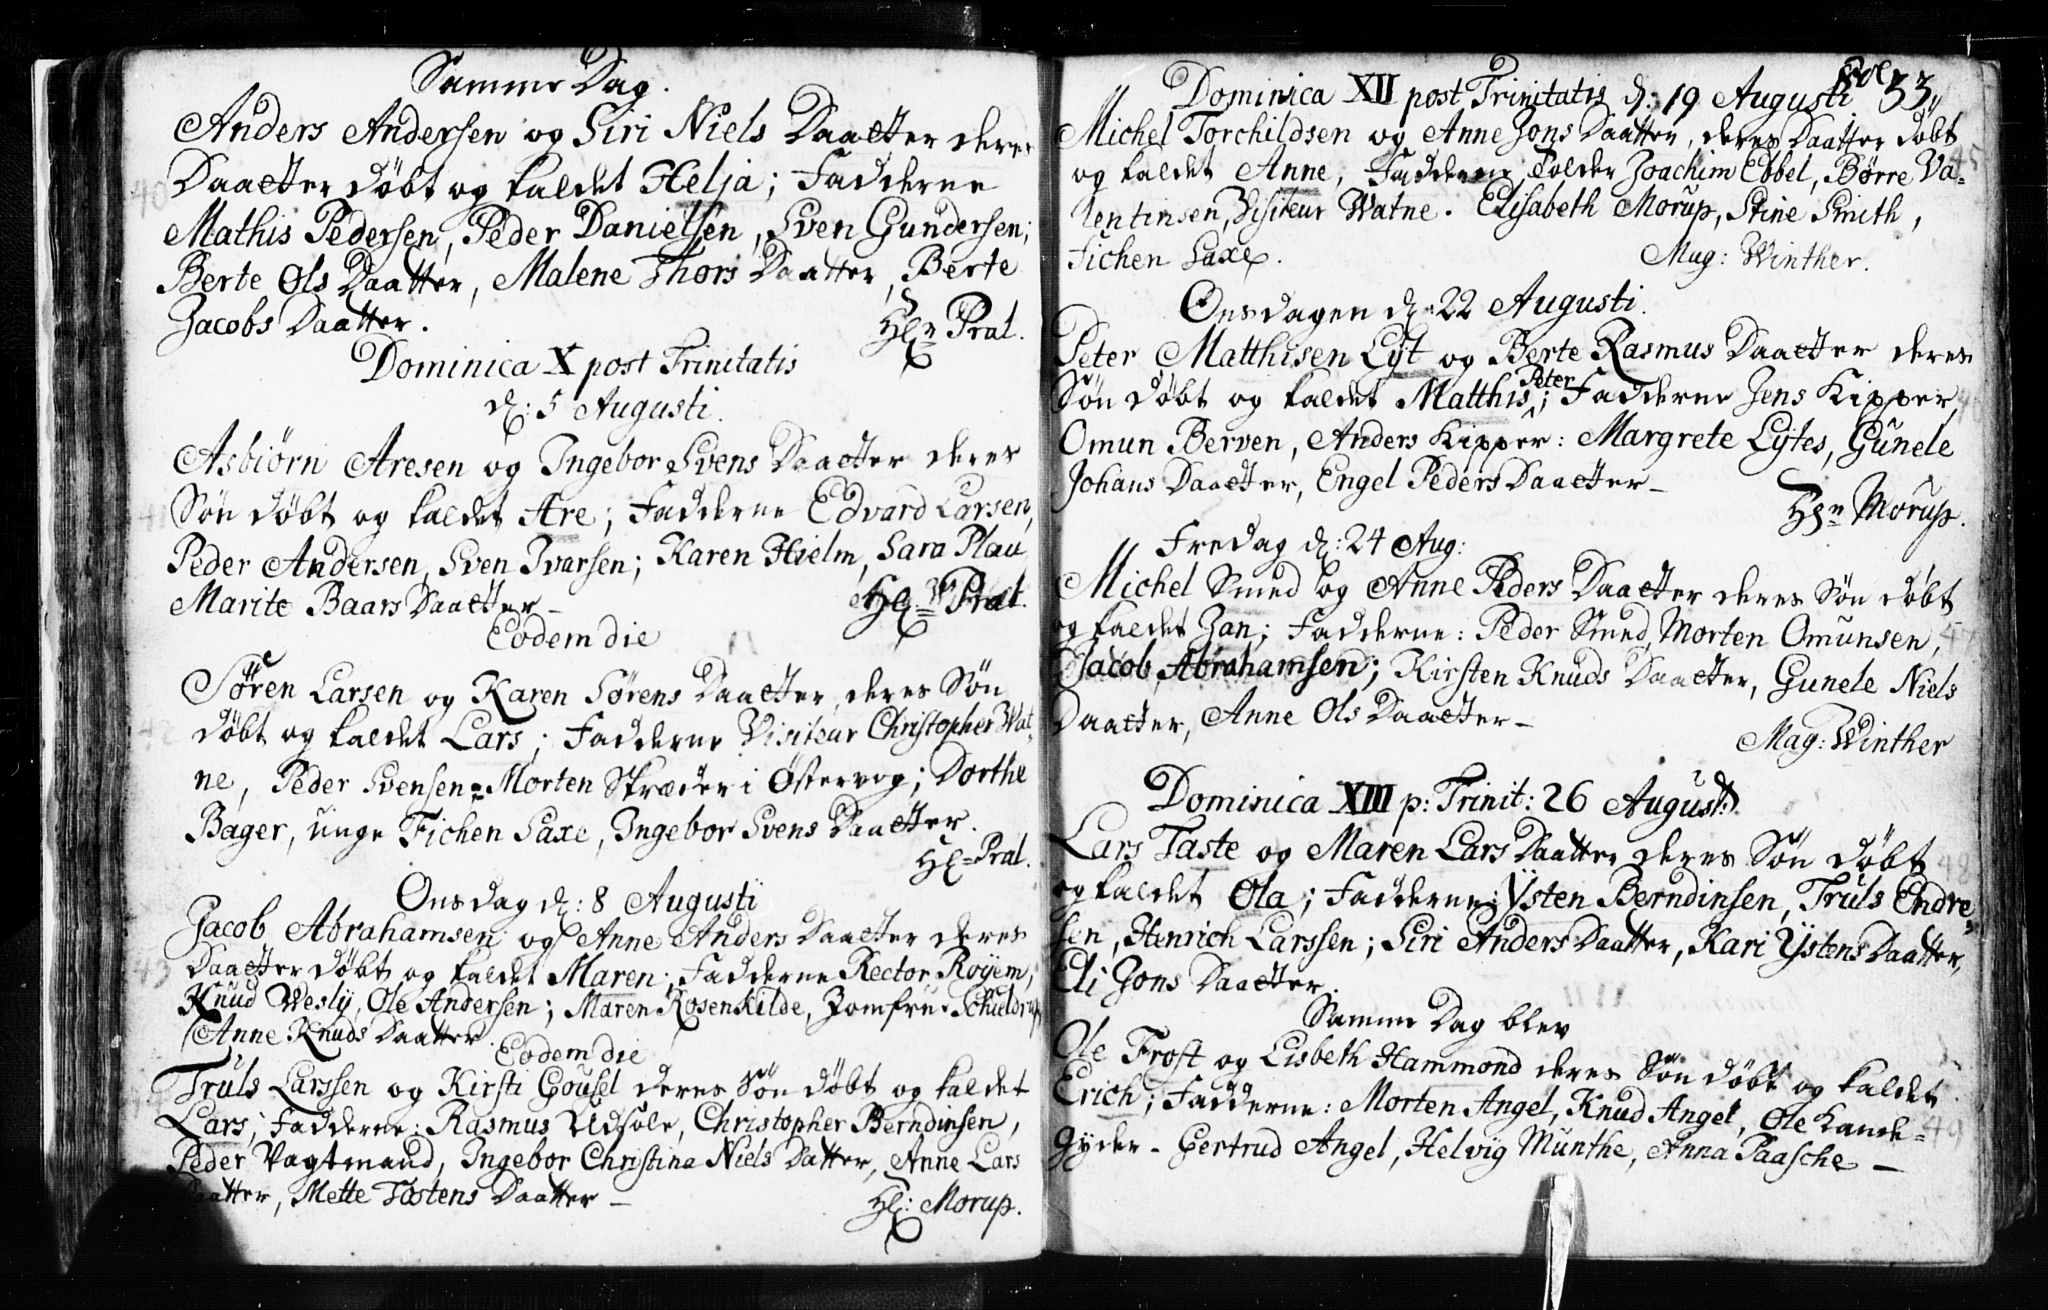 Samme Dag.
Anders Andersen og Siri Niels Daatter deres
Daatter døbt og kaldet Helja; Fadderne
Mathis Pedersen, Peder Danielsen, Sven Gundersen;
Berte Ols Daatter, Malene Thors Daatter, Berte
Jacobs Daatter.
Hr: Prat.
Dominica X post Trinitatis
d: 5 Augusti.
Asbiörn Aresen og Ingebor Svens Daatter deres
Søn døbt og kaldet Are; Fadderne Edvard Larsen,
Peder Andersen, Sven Ivarsen; Karen Hielm, Sara Plau
Marite Baars Daatter –
Prat.
Eodem die
Søren Larsen og Karen Sørens Daatter, deres Søn
døbt og kaldet Lars; Fadderne Visiteur Christopher Wat-
ne, Peder Svensen, Morten Skræder i Østervog; Dorthe
Bager, unge Fichen Saxe, Ingebor Svens Daatter.
Hr: Prat.
Onsdag d: 8 Augusti
Jacob Abrahamsen og Anne Anders Daatter deres
Daatter døbt og kaldet Maren; Fadderne Rector Royem,
Knud Wesly, Ole Andersen; Maren Rosenkilde, Jomfru Schieldrup,
Anne Knuds Daatter.
Eodem die
Truls Larssen og Kirsti Gousel deres Søn døbt og kaldet
Lars; Fadderne: Rasmus Udsole, Christopher Berndinsen,
Peder Vagtmand, Ingebor Christina Niels Datter, Anne Lars
Daatter, Mette Tostens Daatter –
Hr: Morup.
Fol: 33
Dominica XII post Trinitatis d: 19 Augusti
Michel Torchildsen og Anne Jons Daatter, deres Daatter døbt
og kaldet Anne, Fadderne Tolder Joachim Ebbel, Børre Va- 45
lentinsen, Visiteur Watne. Elisabeth Morup, Stine Smith,
Fichen Saxe.
Mag: Winther.
Onsdagen d: 22 Augusti.
Peter Matthisen Lyt og Berte Rasmus Daatter deres
Søn døbt og kaldet Matthis Peter; Fadderne Jens Kipper,
Omun Berven, Anders Kipper: Margrete Lytes, Gunele
Johans Daatter, Engel Peders Daatter –
Hr: Morup.
Fredag d: 24 Aug:
Michel Smed og Anne Peders Daatter deres Søn døbt
og kaldet Jan; Fadderne: Peder Smed, Morten Omunsen, 47
Jacob Abrahamsen; Kirsten Knuds Daatter, Gunele Niels
Daatter, Anne Ols Daatter –
Mag: Winther
Dominica XIII p: Trinit: 26 August:
Lars Taste og Maren Lars Daatter deres Søn døbt
og kaldet Ola; Fadderne: Ysten Berndinsen, Truls Endre-
sen, Henrich Larssen; Siri Anders Daatter, Kari Ystens Daatter,
Eli Jons Daatter.
Samme Dag blev
Ole Frost og Lisbeth Hammond deres Søn døbt og kaldet
Erich; Fadderne: Morten Angel, Knud Angel, Ole Kande- 49
gyder – Gertrud Angel, Helvig Munthe, Anna Paasche –